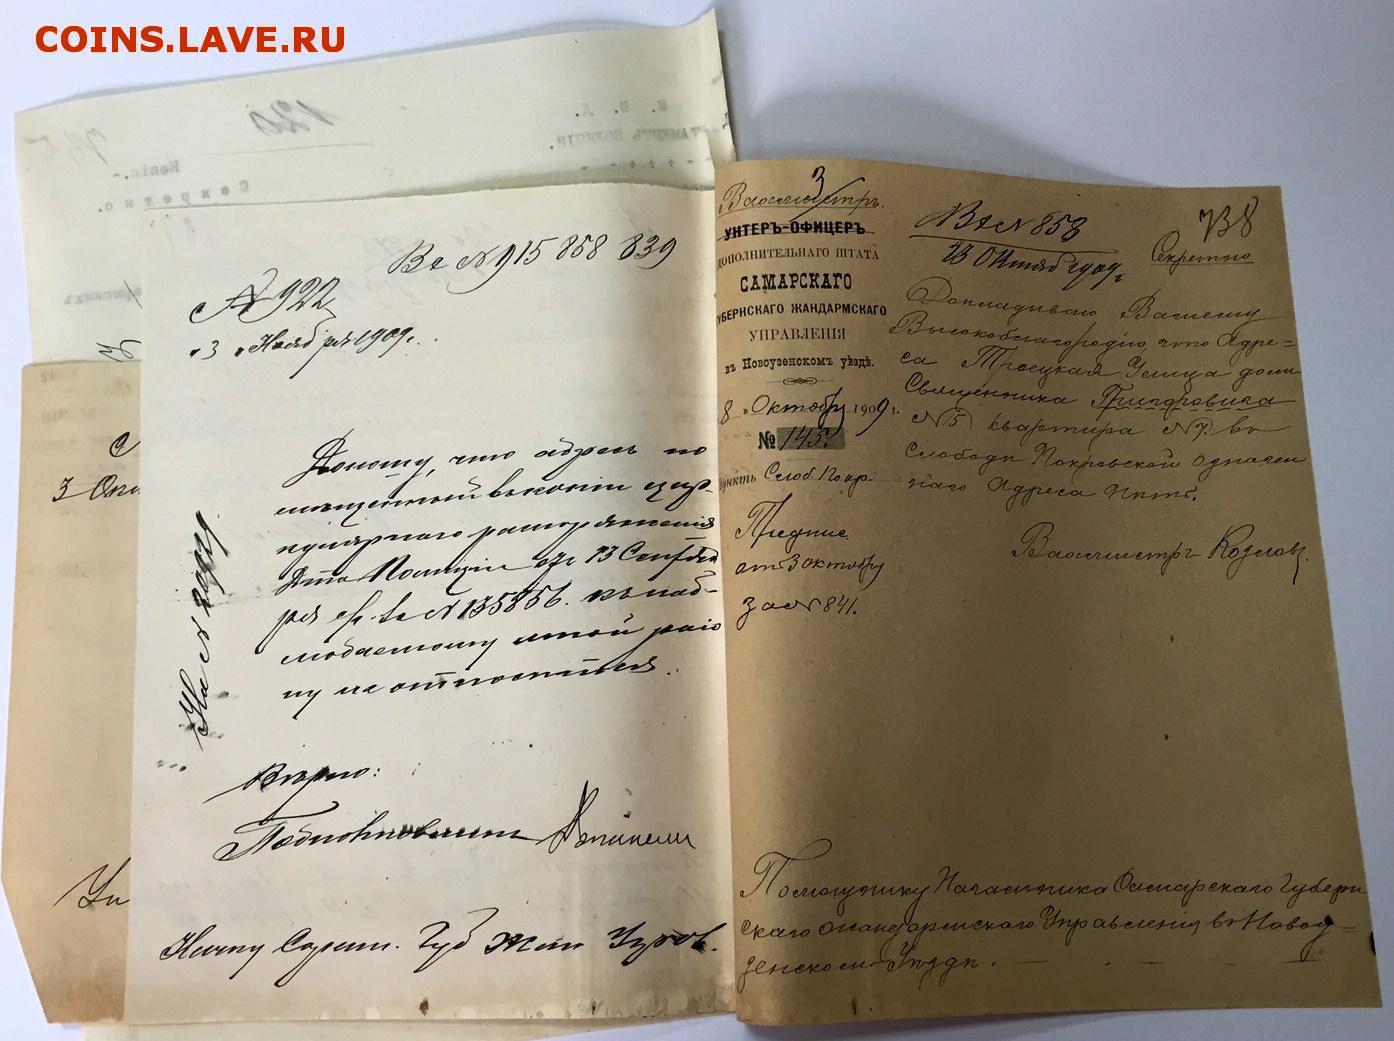 COINS.LAVE.RU
120
М. В. Д.
ТАМЕНТЪ ПОЛИЦІИ.
Копія.
Секретно.
Вх № 915 858 839
№ 922
"3" Ноября 1909 г.
Доношу, что адресъ по
мѣщенный въ копіи цир-
кулярнаго распоряженія
Д-та Полиціи отъ 13 Сентяб
ря с/г. за № 135856. къ наб-
людаемому мной раіо
ну не относится.
На №
Вѣрно:
Подполковникъ
Нач-ку Губ Жан Упров.
3 Ок
3
Вахмистръ.
УНТЕРЪ-ОФИЦЕРЪ
ДОПОЛНИТЕЛЬНАГО ШТАТА
САМАРСКАГО
УБЕРНСКАГО ЖАНДАРМСКАГО
УПРАВЛЕНІЯ
въ Новоузенскомъ уѣздѣ.
8 " Октября 1909 г.
№ 145.
унктъ Слоб. Покр.
Предпис.
от 3 октября
за № 841.
Вх № 858
13 Октяб 1909 г.
738
Секретно
Докладываю Вашему
Высокоблагородію, что Адре=
са Троецкая Улица домъ
Священника
№ 5 квартира № 7. во
Слободѣ Покровской означен
наго Адреса нѣтъ.
Вахмистръ Козловъ
Помощнику Начальника Самарскаго Губерн
скаго Жандармскаго Управленія въ Новоу=
зенскомъ Уѣздѣ.